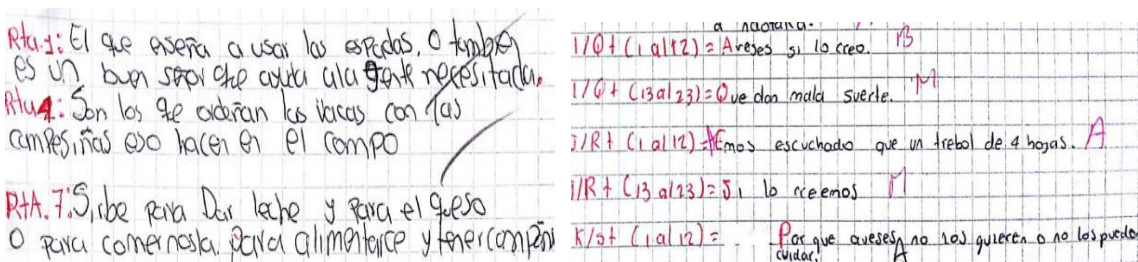 Rta.1: El que enseña a usar las espadas, O tambien
es un buen señor que ayuda ala gente necesitada.
Rta4: Son los qe ordeñan las vacas con las
campesiñas eso hacen en el campo
RtA.7: Sirbe para Dar leche y para el queso
O para comernosla. para alimentarce y tener compañi
a
I/Q+ (1 al 12) = Aveses si lo creo. B
I/Q+ (13 al 23) = Que dan mala suerte. M
I/R+ (1 al 12) = Emos escuchado que un trebol de 4 hojas. A
I/R+ (13 al 23) = Si lo creemos M
K/5+ (1 al 12) = Por que aveses no los quieren o no los pueden
cuidar. A